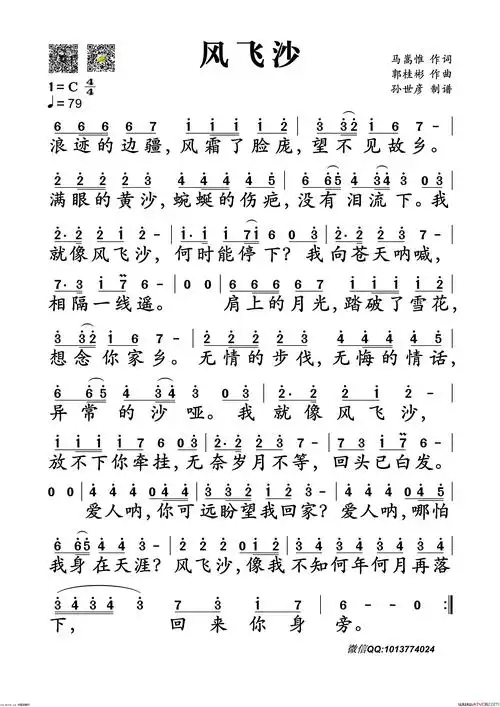 风飞沙
马嵩惟 作词
1=C 4/4
郭桂彬 作曲
♩=79
孙世彦 制谱
6 6 6 6 7 i i i i 2 | 3 32 i 6 7 - |
浪迹的边疆,风霜了脸庞,望不见故乡。
2 2 2 2 3 4 4 4 4 5 | 6 65 4 34 3 0 3 |
满眼的黄沙,蜿蜒的伤疤,没有泪流下。我
2· 2 2 1 2 - | i· i i 7i 6 0 0 3 | 2· 2 2 7 3 - |
就像风飞沙,何时能停下?我向苍天呐喊,
7· 3 i 7 6 - | 0 0 | 6 6 6 6 7 i i i i 2 |
相隔一线遥。肩上的月光,踏破了雪花,
3 32 i 6 7 - | 2 2 2 2 3 4 4 4 4 5 |
想念你家乡。无情的步伐,无悔的情话,
6 65 4 34 3 0 3 | 2· 2 2 1 2 - |
异常的沙哑。我就像风飞沙,
i i i i 7 6 0 3 | 2· 2 2 2 3 - | 7 3 i 7 6 - |
放不下你牵挂,无奈岁月不等,回头已白发。
0 0 | 4 4 4 0 4 | 3 3 3 2 2 2 3 | 4 4 4 0 4 |
爱人呐,你可远盼望我回家?爱人呐,哪怕
6 65 4 4 3 - | 2 2 2 0 i2 | 3 3 3 3 4 3 4 |
我身在天涯?风飞沙,像我不知何年何月再落
3 4 3 4 3 7 3 i 7 | 6 - - 0 :||
下,回来你身旁。
微信QQ:1013774024